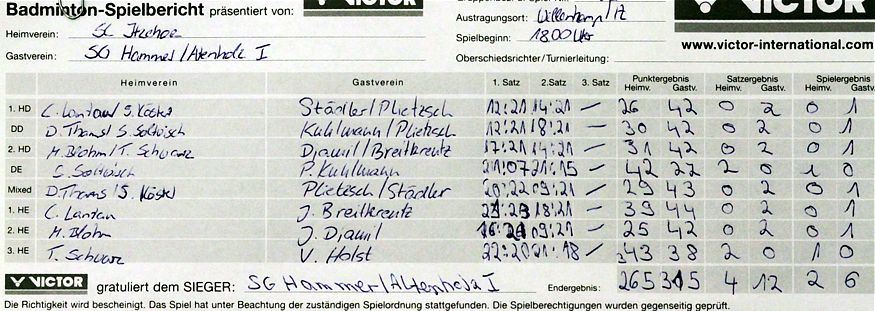 Badminton-Spielbericht präsentiert von: VICTOR
Heimverein: SC Itzehoe
Gastverein: SG Hammer/Altenholz I
Austragungsort:
Spielbeginn: 18.00 Uhr
Oberschiedsrichter/Turnierleitung:
VICTOR
www.victor-international.com
Heimverein Gastverein 1. Satz 2. Satz 3. Satz Punktergebnis Heimv. Gastv. Satzergebnis Heimv. Gastv. Spielergebnis Heimv. Gastv.
1. HD C. Lantau/S. Köstel Städler/Plietzsch 12:21 14:21 — 26 42 0 2 0 1
DD D. Thoms/S. Soltvisch Kuhlmann/Plietzsch 12:21 18:21 — 30 42 0 2 0 1
2. HD M. Blohm/T. Schwarz Djamil/Breitkreutz 17:21 14:21 — 31 42 0 2 0 1
DE S. Soltvisch P. Kuhlmann 21:07 21:15 — 42 22 2 0 1 0
Mixed D. Thoms/S. Köstel Plietzsch/Städler 20:22 09:21 — 29 43 0 2 0 1
1. HE C. Lantau J. Breitkreutz 21:23 18:21 — 39 44 0 2 0 1
2. HE M. Blohm J. Djamil 16:21 09:21 — 25 42 0 2 0 1
3. HE T. Schwarz V. Holst 22:20 21:18 — 43 38 2 0 1 0
VICTOR gratuliert dem SIEGER: SG Hammer/Altenholz I Endergebnis: 265 315 4 12 2 6
Die Richtigkeit wird bescheinigt. Das Spiel hat unter Beachtung der zuständigen Spielordnung stattgefunden. Die Spielberechtigungen wurden gegenseitig geprüft.